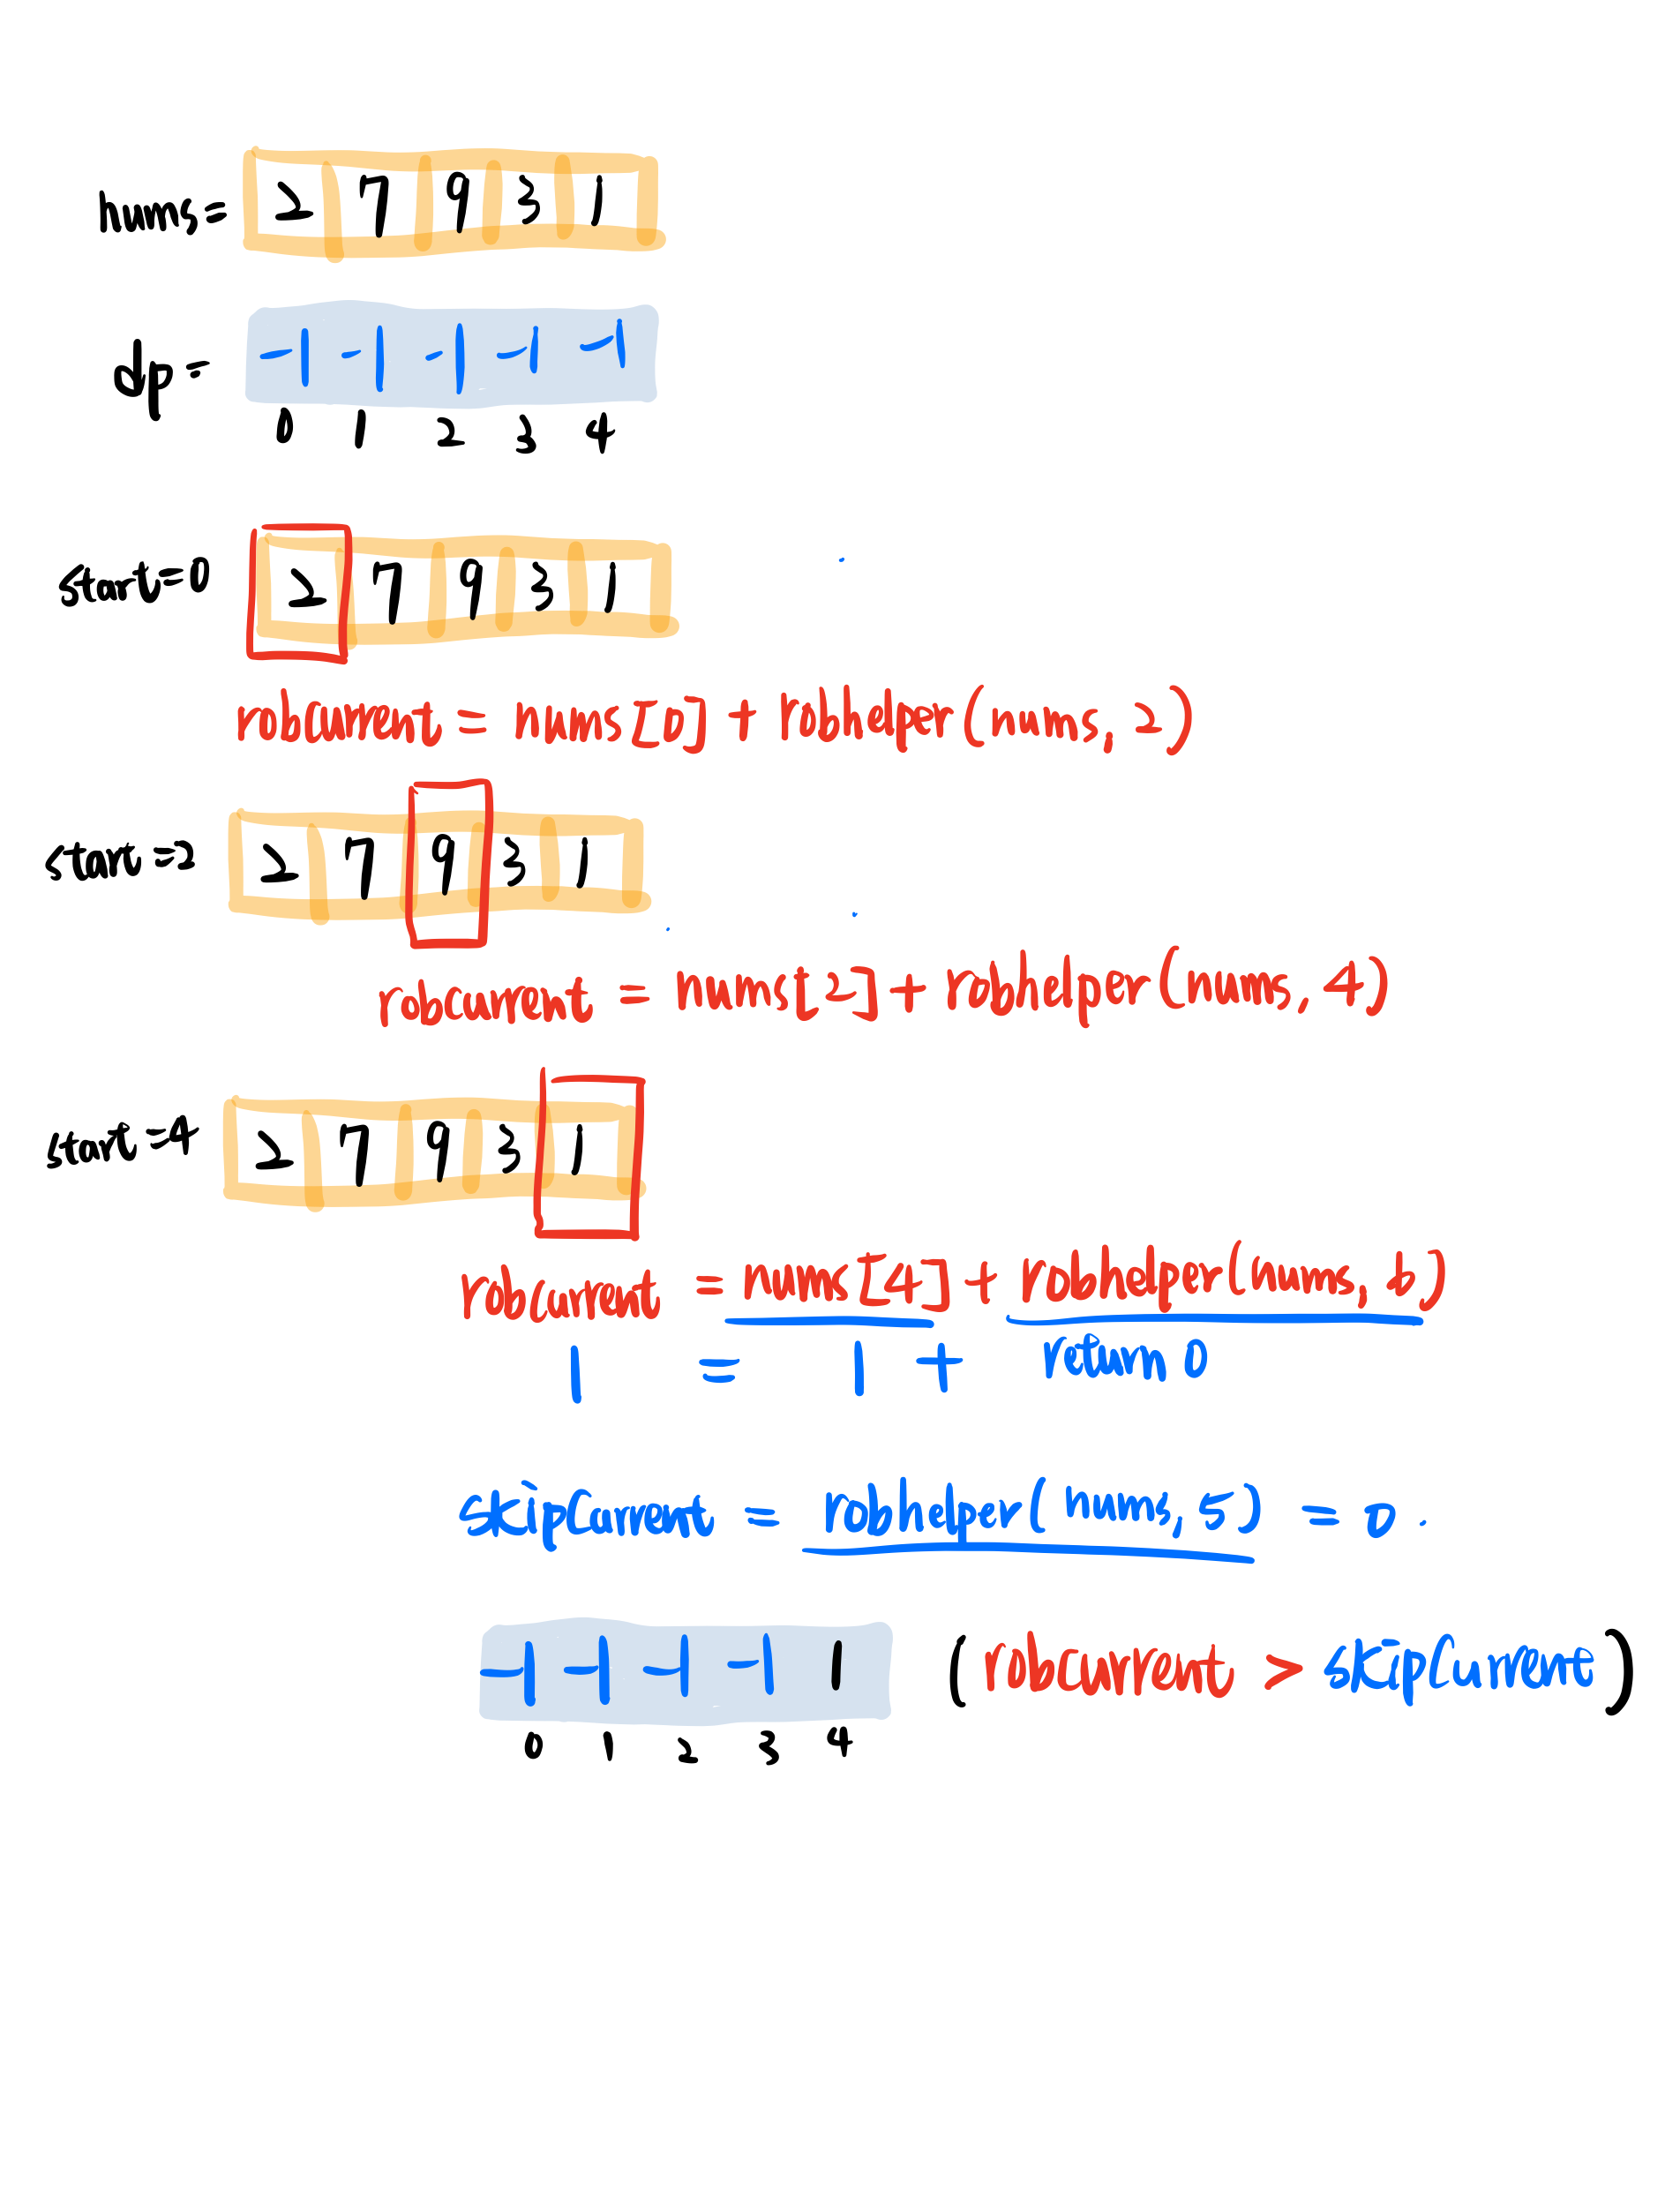 nums= 2 7 9 3 1
dp= -1 -1 -1 -1 -1
0 1 2 3 4
start=0 2 7 9 3 1
robcurrent = nums[0] + robhelper(nums, 2)
start=2 2 7 9 3 1
robcurrent = nums[2] + robhelper(nums, 4)
start=4 2 7 9 3 1
robcurrent = nums[4] + robhelper(nums, 6)
1 = 1 + return 0
skipCurrent = robhelper(nums, 5) = 0.
-1 -1 -1 -1 1 (robcurrent > skipCurrent)
0 1 2 3 4